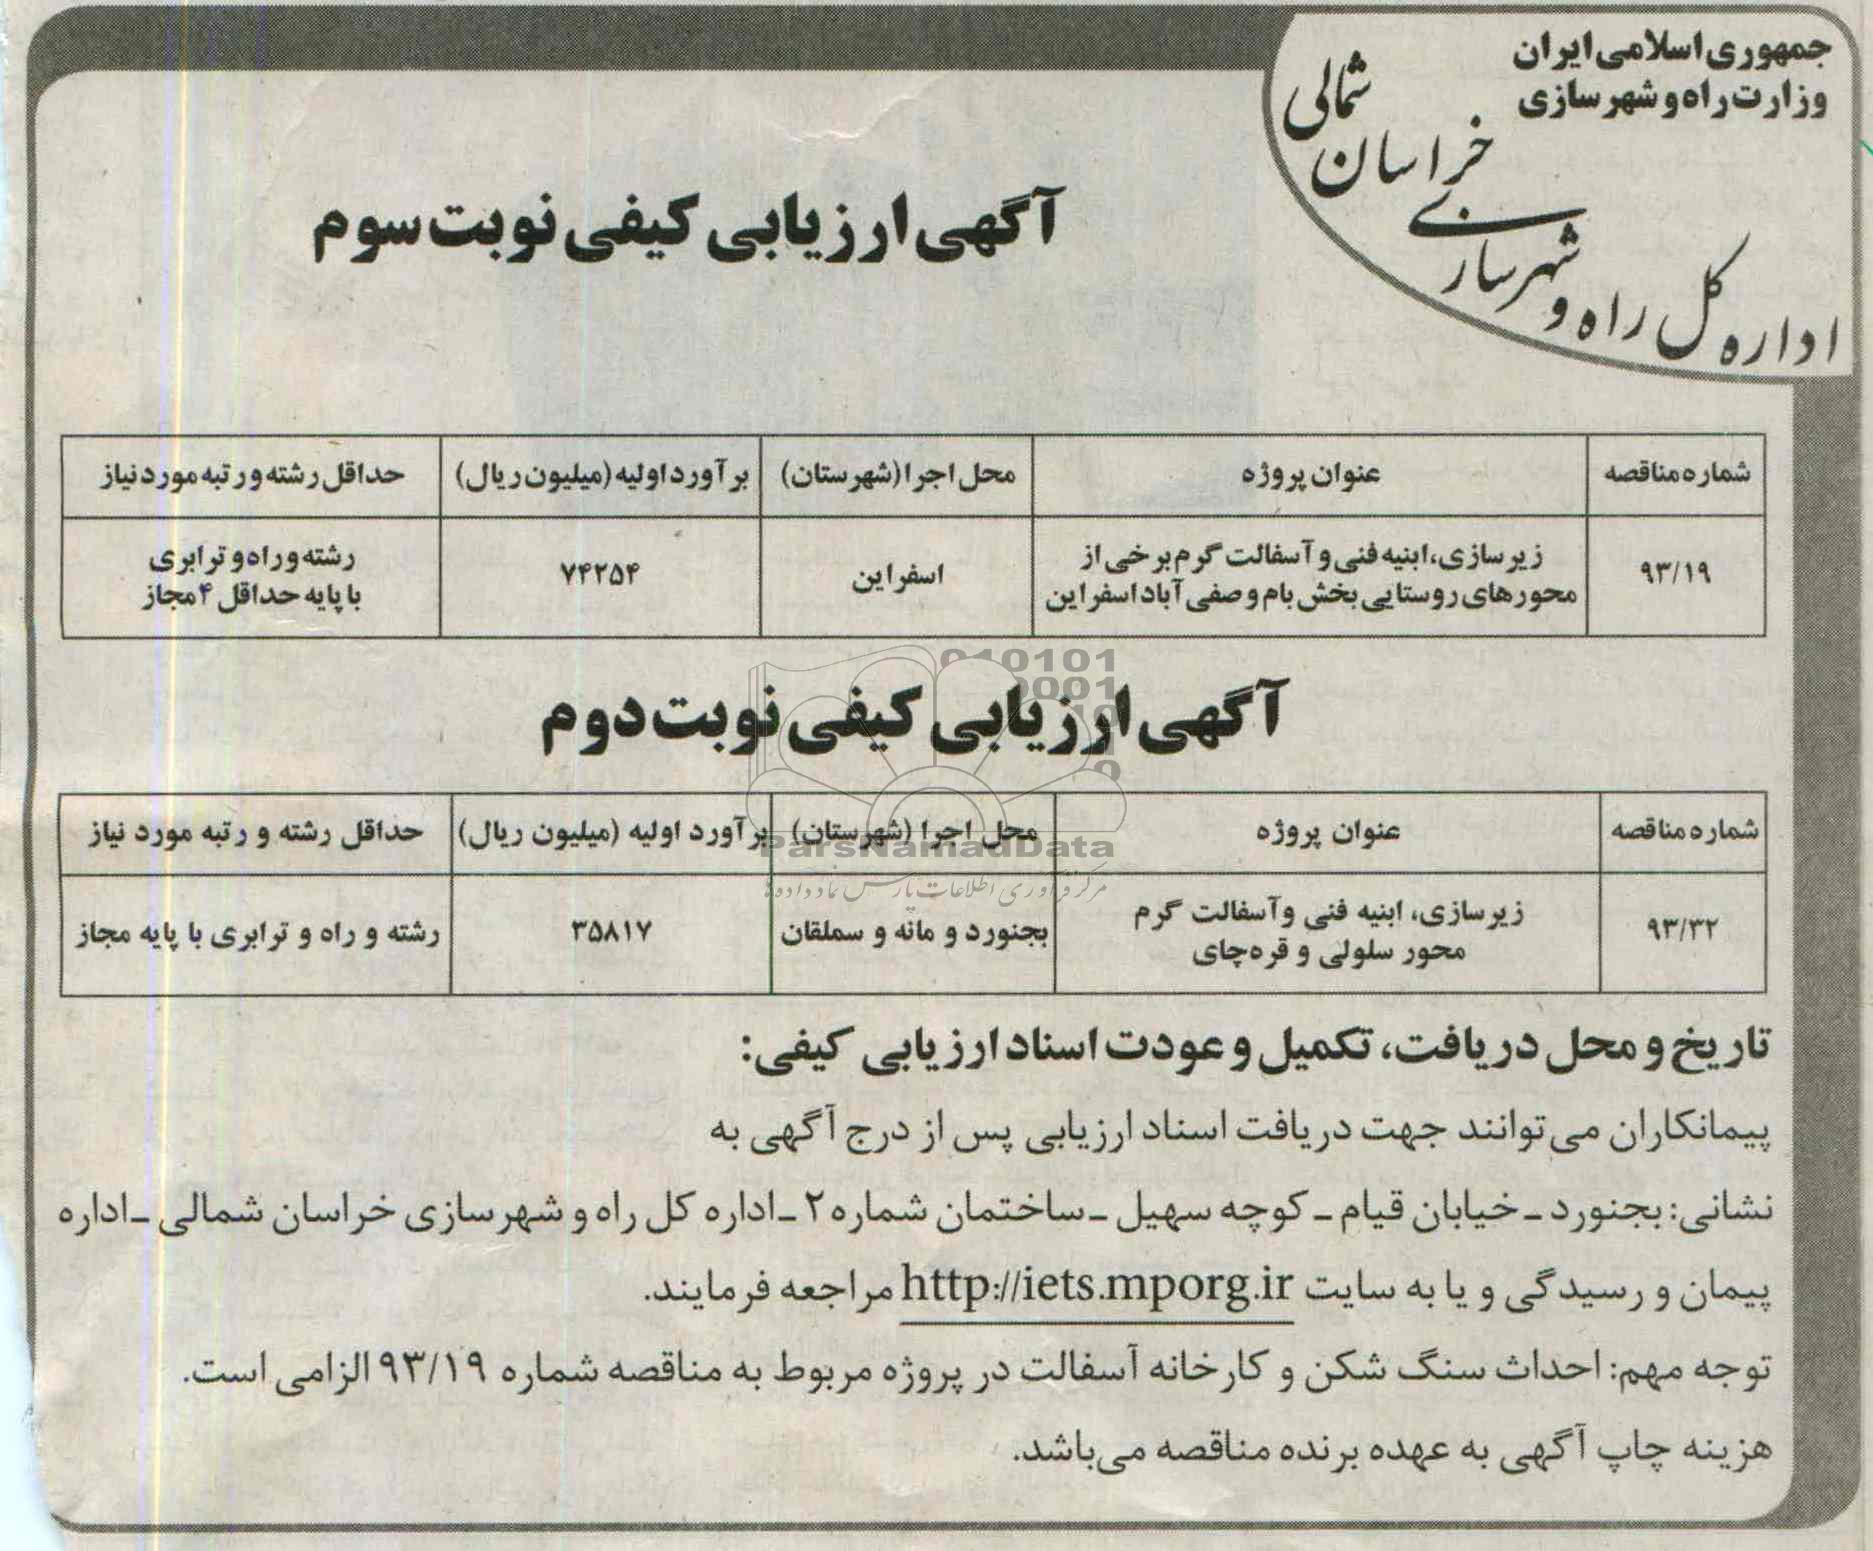 جمهوری اسلامی ایران
وزارت راه و شهرسازی
اداره کل راه و شهرسازی خراسان شمالی
آگهی ارزیابی کیفی نوبت سوم
شماره مناقصه
عنوان پروژه
محل اجرا (شهرستان)
برآورد اولیه (میلیون ریال)
حداقل رشته و رتبه مورد نیاز
۹۳/۱۹
زیرسازی، ابنیه فنی و آسفالت گرم برخی از
محورهای روستایی بخش بام و صفی آباد اسفراین
اسفراین
۷۴۲۵۴
رشته و راه و ترابری
با پایه حداقل ۴ مجاز
آگهی ارزیابی کیفی نوبت دوم
شماره مناقصه
عنوان پروژه
محل اجرا (شهرستان)
برآورد اولیه (میلیون ریال)
حداقل رشته و رتبه مورد نیاز
۹۳/۳۲
زیرسازی، ابنیه فنی وآسفالت گرم
محور سلولی و قره‌چای
بجنورد و مانه و سملقان
۳۵۸۱۷
رشته و راه و ترابری با پایه مجاز
تاریخ و محل دریافت، تکمیل و عودت اسناد ارزیابی کیفی:
پیمانکاران می‌توانند جهت دریافت اسناد ارزیابی پس از درج آگهی به
نشانی: بجنورد ـ خیابان قیام ـ کوچه سهیل ـ ساختمان شماره ۲ ـ اداره کل راه و شهرسازی خراسان شمالی ـ اداره
پیمان و رسیدگی و یا به سایت http://iets.mporg.ir مراجعه فرمایند.
توجه مهم: احداث سنگ شکن و کارخانه آسفالت در پروژه مربوط به مناقصه شماره ۹۳/۱۹ الزامی است.
هزینه چاپ آگهی به عهده برنده مناقصه می‌باشد.
010101
0001
10
1
0
ParsNamadData
مرکز فرآوری اطلاعات پارس نماد داده‌ها